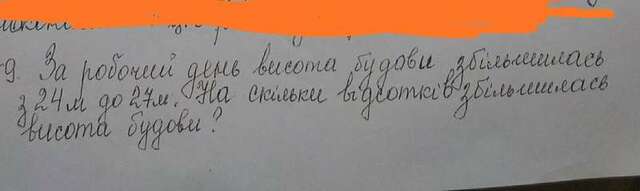 9. За робочий день висота будови збільшилась
з 24м до 27м. На скільки відсотків збільшилась
висота будови?